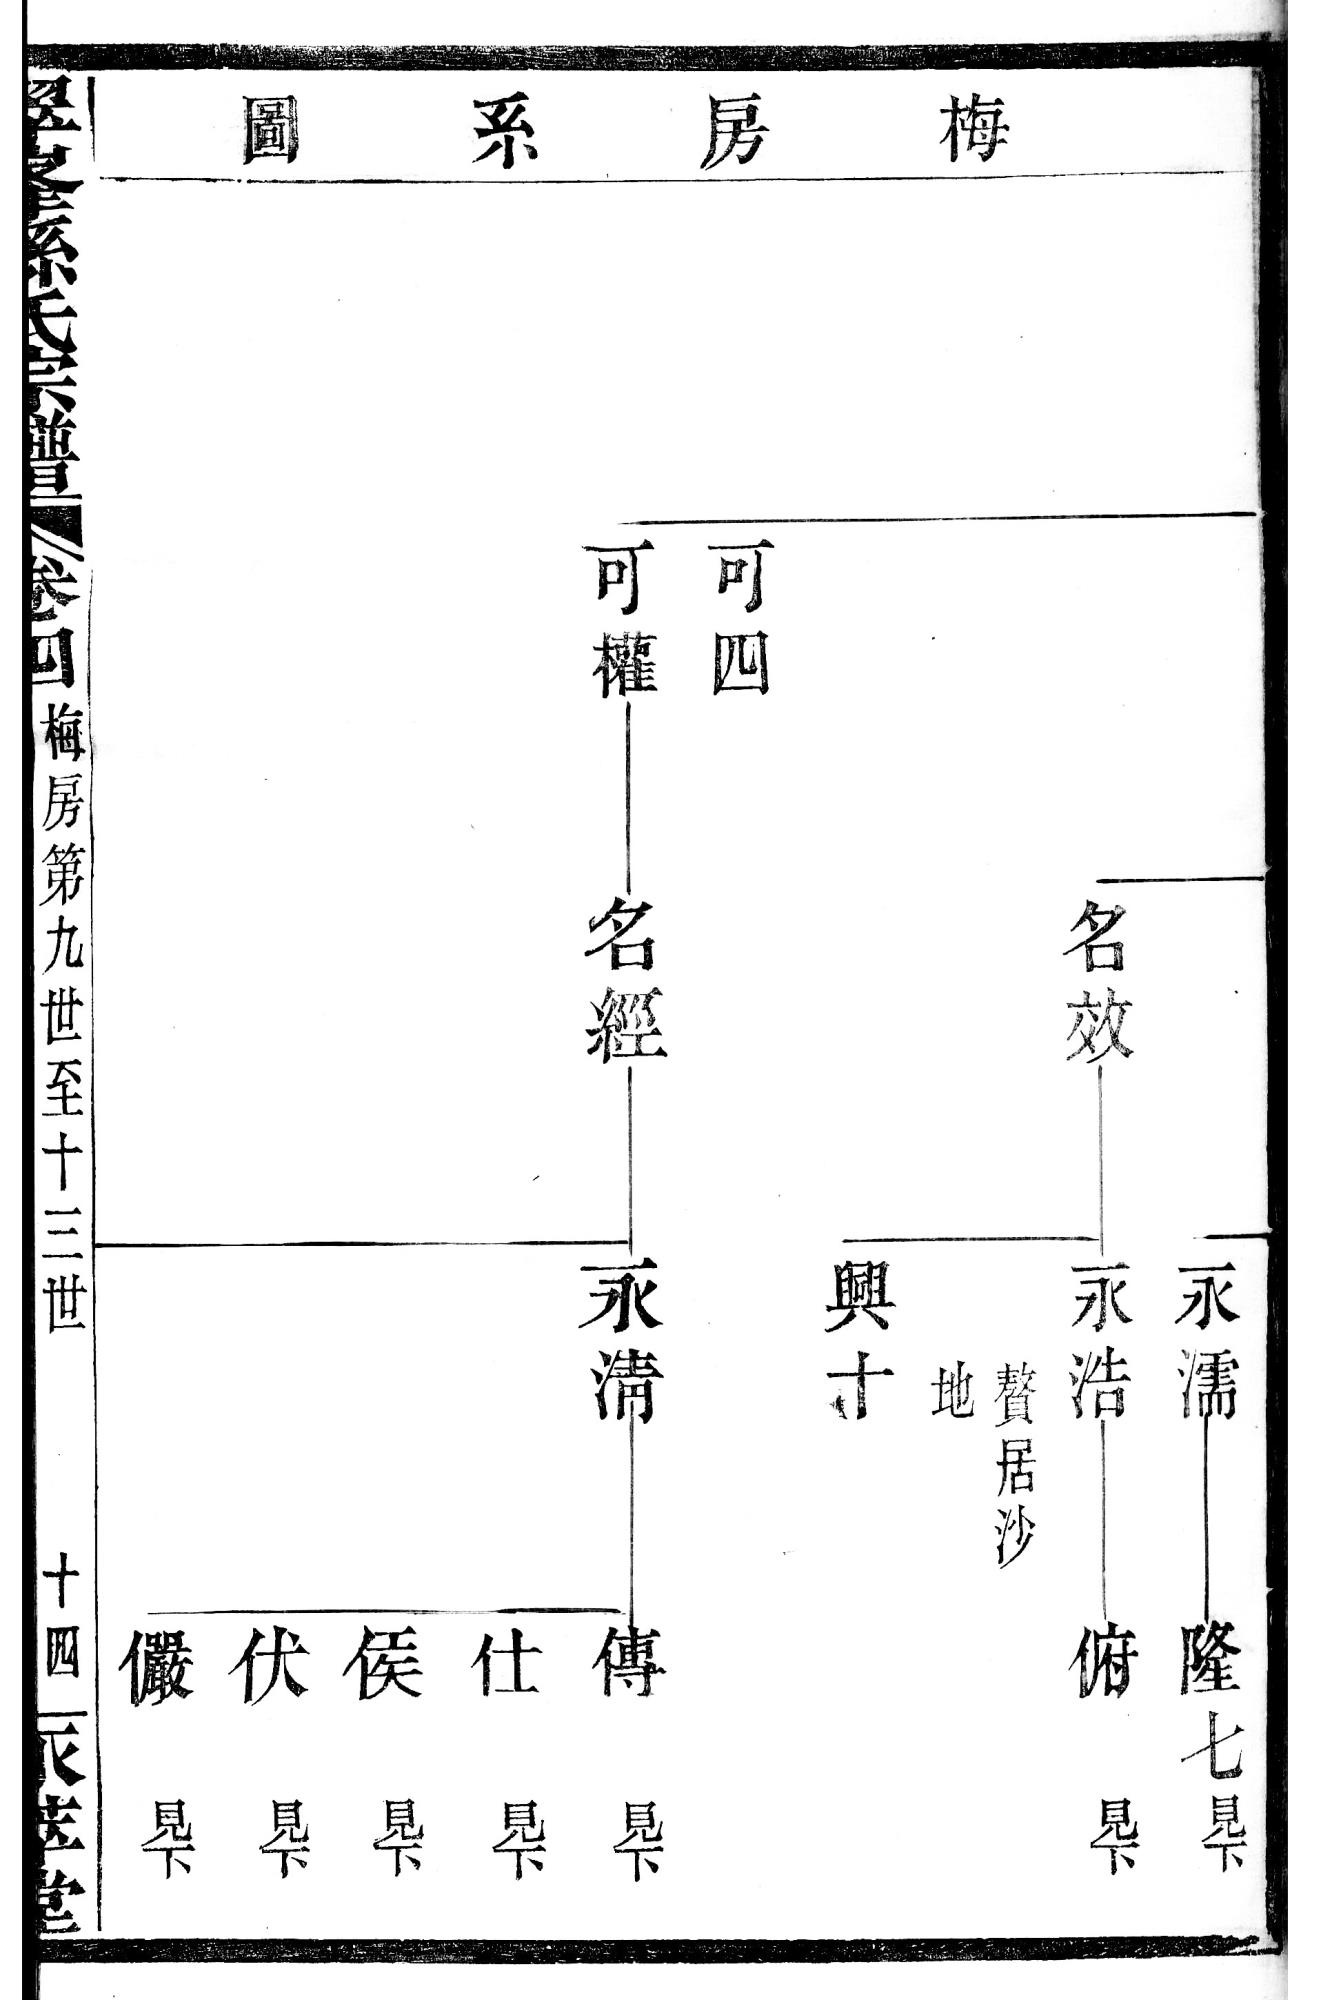 梅房系圖
可四
可權
名效
名經
永濡
永浩
贅居沙
地
興十
永淸
隆七 見下
俯 見下
傳 見下
仕 見下
俟 見下
伏 見下
儼 見下
孫氏宗譜
卷四
梅房第九世至十三世
十四
永萃堂